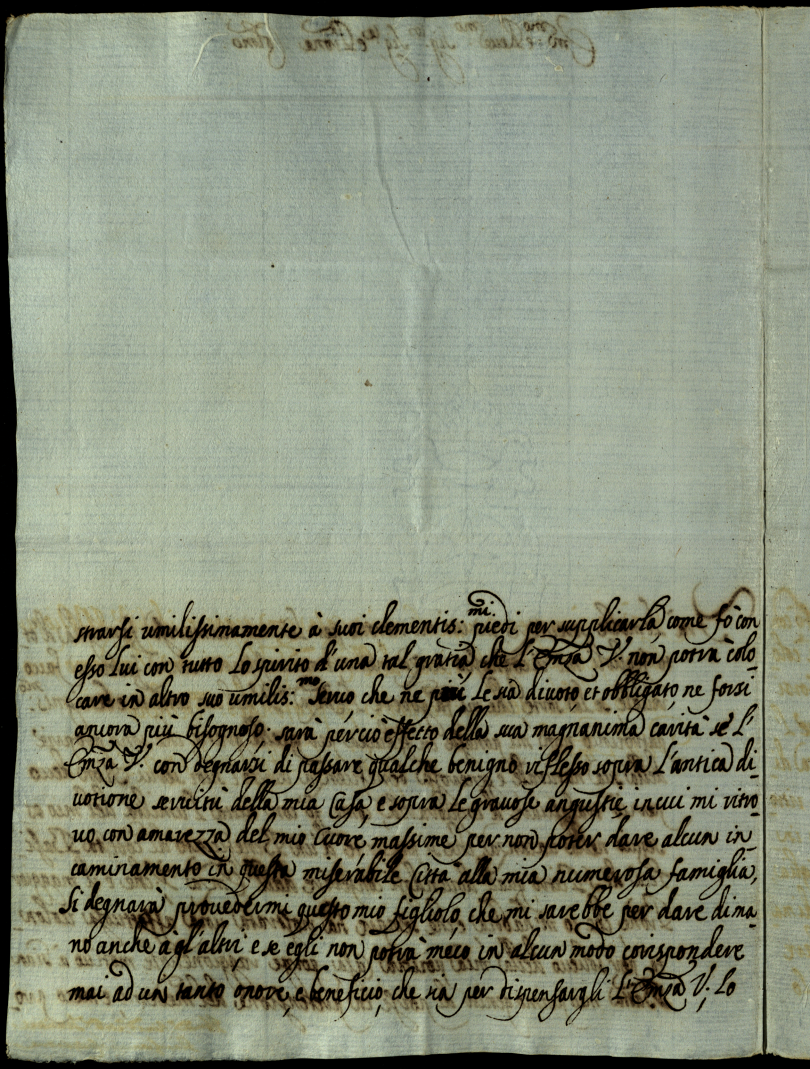 strarsi umilissimamente à suoi clementis:mi piedi per supplicarla come fò con
esso lui con tutto lo spirito d'una tal gratia che l'Emza V. non potrà colo¬
care in altro suo umilis:mo servo che ne più le sia divoto et obbligato ne forsi
ancora più bisognoso. sarà perciò effetto della sua magnanima carità se l'
Emza V. con degnarsi di passare qualche benigno riflesso sopra l'antica di¬
votione servitù della mia Casa, e sopra le gravose angustie in cui mi ritro¬
vo con amarezza del mio Cuore massime per non poter dare alcun in¬
caminamento in questa miserabile Città alla mia numerosa famiglia,
si degnarà provedermi questo mio figliolo, che mi sarebbe per dare di ma¬
no anche à gl'altri, e se egli non potrà meco in alcun modo corispondere
mai ad un tanto onore, e beneficio, che sia per dispensargli l'Emza V., lo